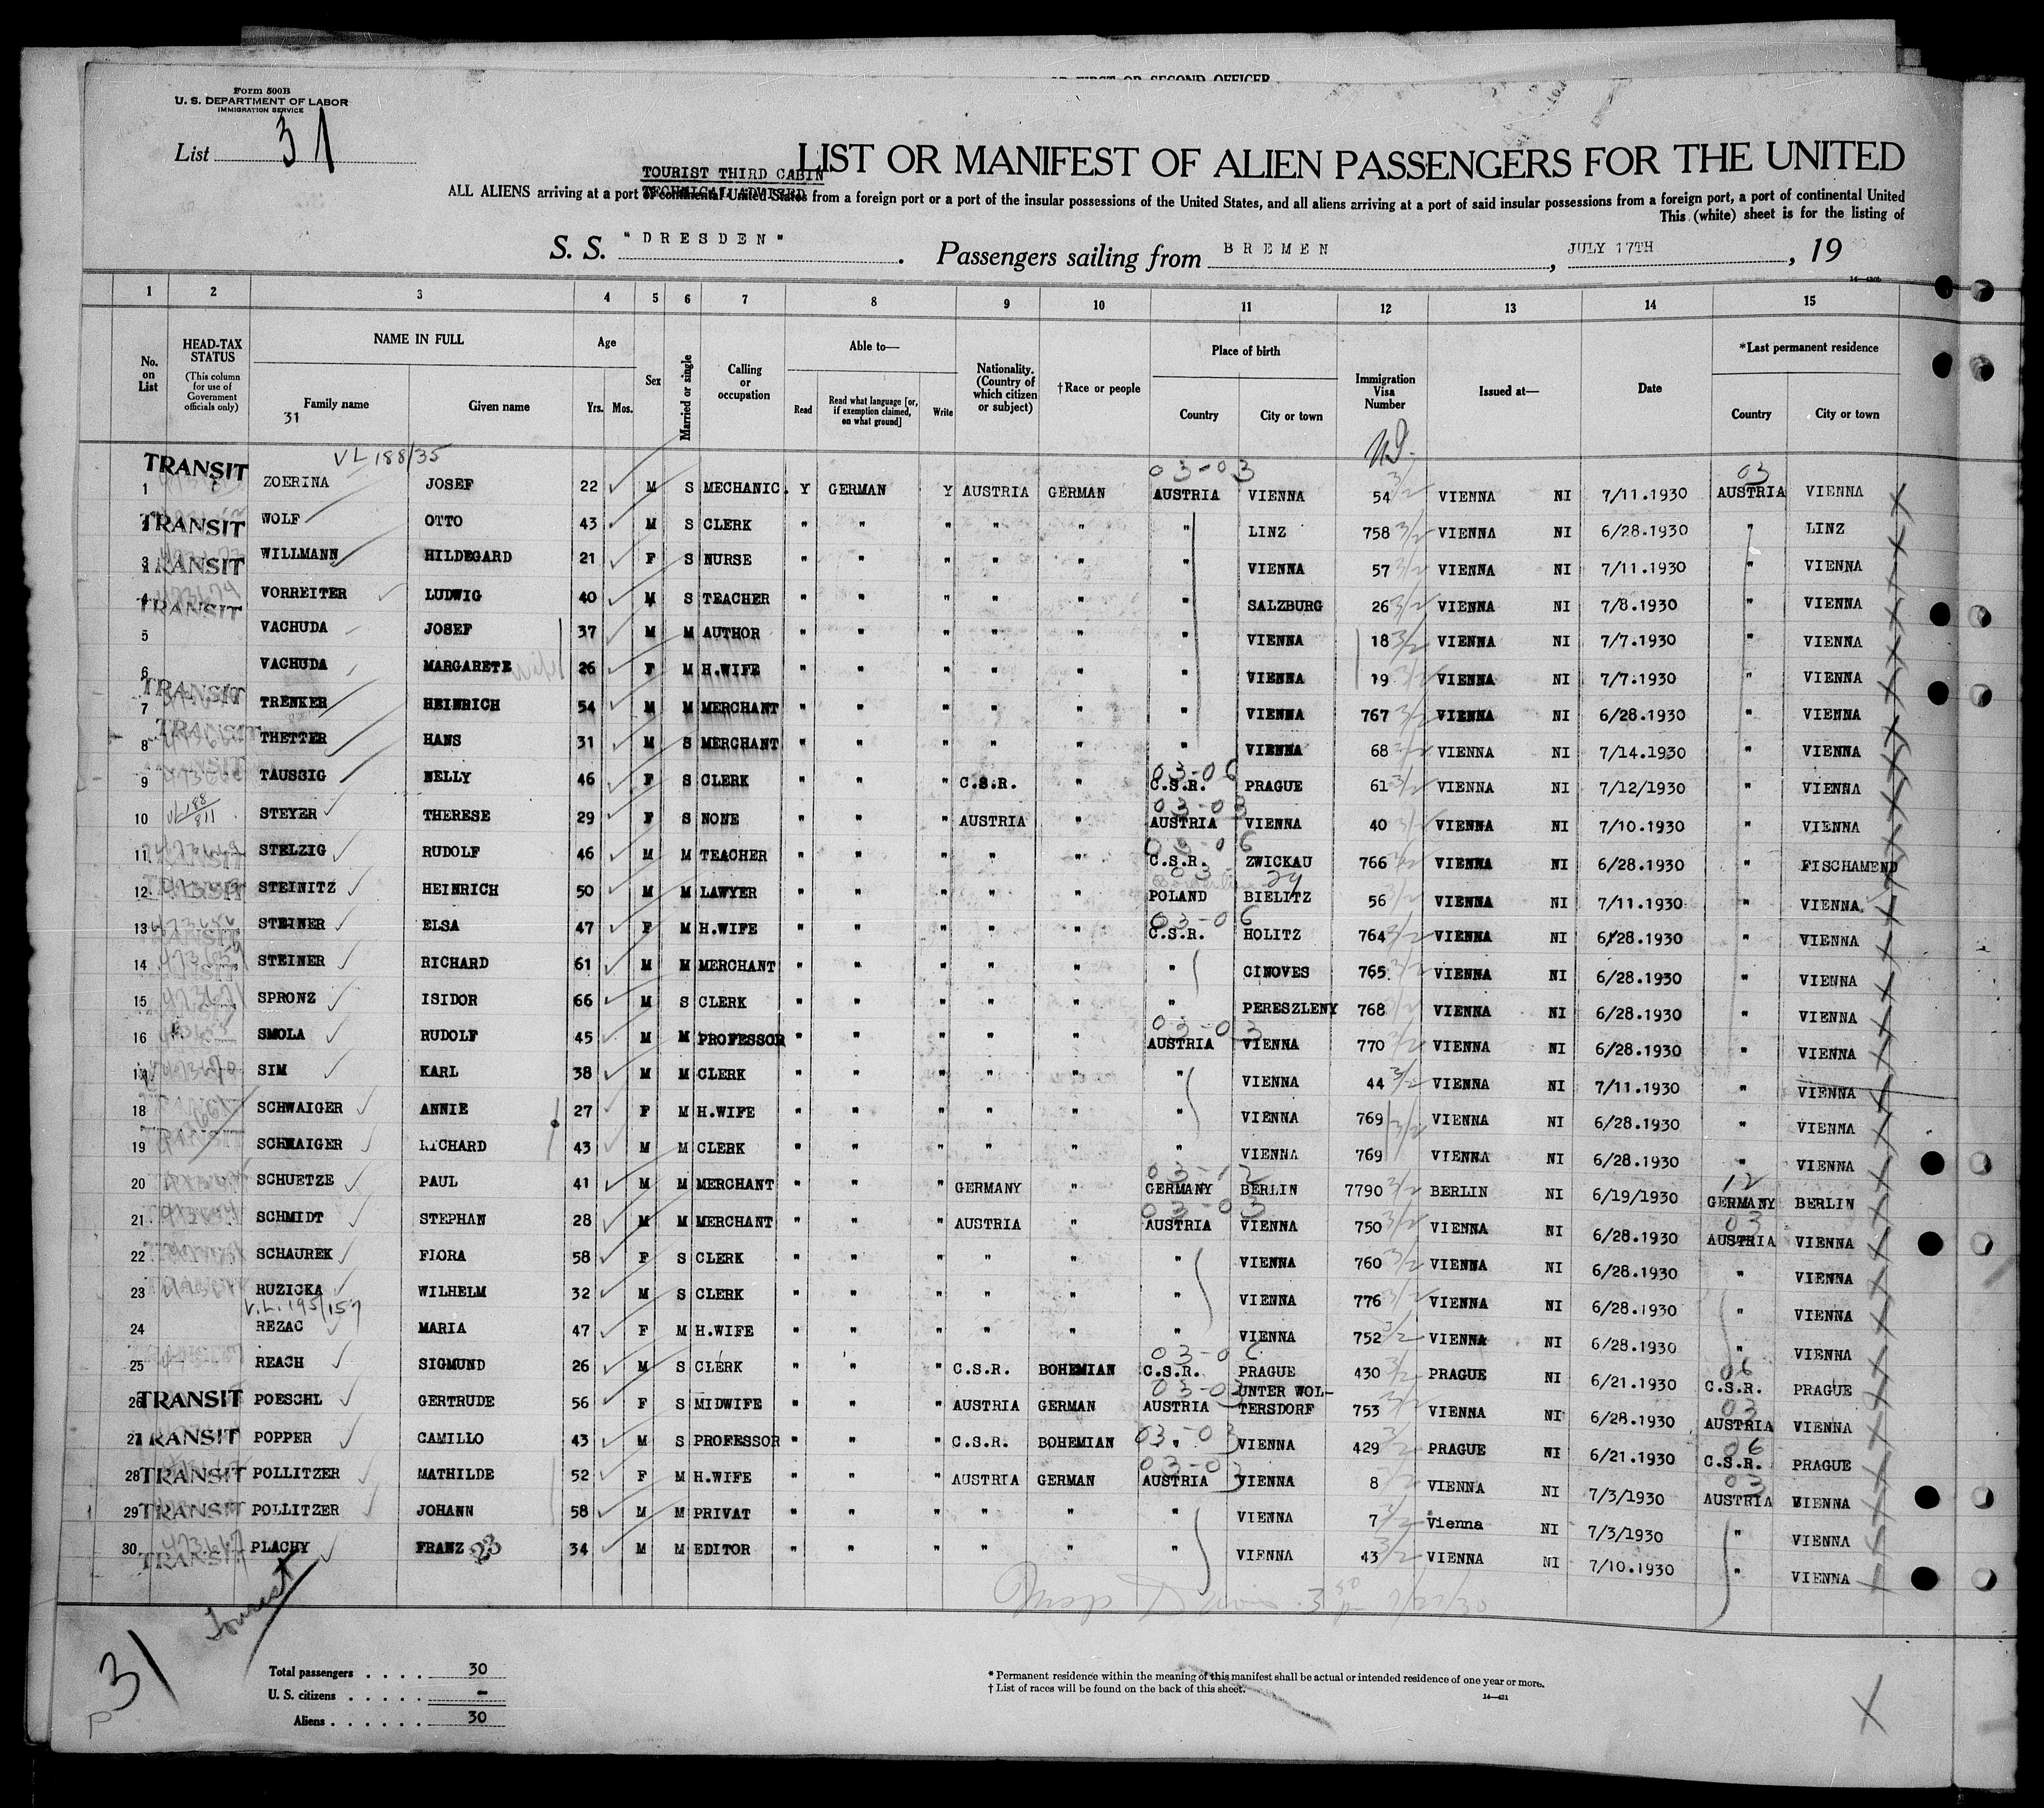 OR FIRST OR SECOND OFFICER
Form 500B
U. S. DEPARTMENT OF LABOR
IMMIGRATION SERVICE
List 31
LIST OR MANIFEST OF ALIEN PASSENGERS FOR THE UNITED
TOURIST THIRD CABIN
ALL ALIENS arriving at a port of continental United States from a foreign port or a port of the insular possessions of the United States, and all aliens arriving at a port of said insular possessions from a foreign port, a port of continental United
This (white) sheet is for the listing of
S. S. "DRESDEN". Passengers sailing from BREMEN, JULY 17TH, 19
1 2 3 4 5 6 7 8 9 10 11 12 13 14 15
No. on List
HEAD-TAX STATUS (This column for use of Government officials only)
NAME IN FULL
Family name 31
Given name
Age Yrs. Mos.
Sex
Married or single
Calling or occupation
Able to—
Read
Read what language [or, if exemption claimed, on what ground]
Write
Nationality. (Country of which citizen or subject)
†Race or people
Place of birth
Country City or town
Immigration Visa Number
Issued at—
Date
*Last permanent residence
Country City or town
VL 188/35
03-03 03
TRANSIT 1 ZOERINA JOSEF 22 M S MECHANIC. Y GERMAN Y AUSTRIA GERMAN AUSTRIA VIENNA 54 3/2 VIENNA NI 7/11.1930 AUSTRIA VIENNA
TRANSIT 2 WOLF OTTO 43 M S CLERK " " " " " " LINZ 758 3/2 VIENNA NI 6/28.1930 " LINZ
TRANSIT 3 WILLMANN HILDEGARD 21 F S NURSE " " " " " " VIENNA 57 3/2 VIENNA NI 7/11.1930 " VIENNA
TRANSIT 4 VORREITER LUDWIG 40 M S TEACHER " " " " " " SALZBURG 26 3/2 VIENNA NI 7/8.1930 " VIENNA
5 VACHUDA JOSEF 37 M M AUTHOR " " " " " " VIENNA 18 3/2 VIENNA NI 7/7.1930 " VIENNA
6 VACHUDA MARGARETE wife 26 F M H.WIFE " " " " " " VIENNA 19 3/2 VIENNA NI 7/7.1930 " VIENNA
TRANSIT 7 TRENKER HEINRICH 54 M M MERCHANT " " " " " " VIENNA 767 3/2 VIENNA NI 6/28.1930 " VIENNA
TRANSIT 8 THETTER HANS 31 M S MERCHANT " " " " " " VIENNA 68 3/2 VIENNA NI 7/14.1930 " VIENNA
TRANSIT 03-06
9 TAUSSIG NELLY 46 F S CLERK " " " C.S.R. " C.S.R. PRAGUE 61 3/2 VIENNA NI 7/12/1930 " VIENNA
VL 188/811 03-03
10 STEYER THERESE 29 F S NONE " " " AUSTRIA " AUSTRIA VIENNA 40 3/2 VIENNA NI 7/10.1930 " VIENNA
03-06
11 STELZIG RUDOLF 46 M M TEACHER " " " " " C.S.R. ZWICKAU 766 3/2 VIENNA NI 6/28.1930 " FISCHAMEND
03- 24
12 STEINITZ HEINRICH 50 M M LAWYER " " " " " POLAND BIELITZ 56 3/2 VIENNA NI 7/11.1930 " VIENNA
03-06
13 STEINER ELSA 47 F M H.WIFE " " " " " C.S.R. HOLITZ 764 3/2 VIENNA NI 6/28.1930 " VIENNA
14 STEINER RICHARD 61 M M MERCHANT " " " " " " CINOVES 765 3/2 VIENNA NI 6/28.1930 " VIENNA
15 SPRONZ ISIDOR 66 M S CLERK " " " " " " PERESZLENY 768 3/2 VIENNA NI 6/28.1930 " VIENNA
03-03
16 SMOLA RUDOLF 45 M M PROFESSOR " " " " " AUSTRIA VIENNA 770 3/2 VIENNA NI 6/28.1930 " VIENNA
17 SIM KARL 38 M M CLERK " " " " " " VIENNA 44 3/2 VIENNA NI 7/11.1930 " VIENNA
18 SCHWAIGER ANNIE 27 F M H.WIFE " " " " " " VIENNA 769 3/2 VIENNA NI 6/28.1930 " VIENNA
19 SCHWAIGER RICHARD 43 M M CLERK " " " " " " VIENNA 769 VIENNA NI 6/28.1930 " VIENNA
03-12 12
20 SCHUETZE PAUL 41 M M MERCHANT " " " GERMANY " GERMANY BERLIN 7790 3/2 BERLIN NI 6/19/1930 GERMANY BERLIN
03-03 03
21 SCHMIDT STEPHAN 28 M M MERCHANT " " " AUSTRIA " AUSTRIA VIENNA 750 3/2 VIENNA NI 6/28.1930 AUSTRIA VIENNA
22 SCHAUREK FLORA 58 F S CLERK " " " " " " VIENNA 760 3/2 VIENNA NI 6/28.1930 " VIENNA
23 RUZICKA WILHELM 32 M S CLERK " " " " " " VIENNA 776 3/2 VIENNA NI 6/28.1930 " VIENNA
V.L. 195/157
24 REZAC MARIA 47 F M H.WIFE " " " " " " VIENNA 752 3/2 VIENNA NI 6/28.1930 " VIENNA
03-06 06
25 REACH SIGMUND 26 M S CLERK " " " C.S.R. BOHEMIAN C.S.R. PRAGUE 430 3/2 PRAGUE NI 6/21.1930 C.S.R. PRAGUE
03-03 03
26 TRANSIT POESCHL GERTRUDE 56 F S MIDWIFE " " " AUSTRIA GERMAN AUSTRIA UNTER WOL-TERSDORF 753 3/2 VIENNA NI 6/28.1930 AUSTRIA VIENNA
03-03 06
27 TRANSIT POPPER CAMILLO 43 M S PROFESSOR " " " C.S.R. BOHEMIAN " VIENNA 429 3/2 PRAGUE NI 6/21.1930 C.S.R. PRAGUE
03-03 03
28 TRANSIT POLLITZER MATHILDE 52 F M H.WIFE " " " AUSTRIA GERMAN AUSTRIA VIENNA 8 3/2 VIENNA NI 7/3/1930 AUSTRIA VIENNA
29 TRANSIT POLLITZER JOHANN 58 M M PRIVAT " " " " " " VIENNA 7 3/2 Vienna NI 7/3/1930 " VIENNA
30 TRANSIT PLACHY FRANZ 23 34 M M EDITOR " " " " " " VIENNA 43 3/2 VIENNA NI 7/10.1930 " VIENNA
Tourist
31
P
Total passengers . . . . 30
U. S. citizens . . . . . -
Aliens . . . . . . 30
* Permanent residence within the meaning of this manifest shall be actual or intended residence of one year or more.
† List of races will be found on the back of this sheet.
14—421